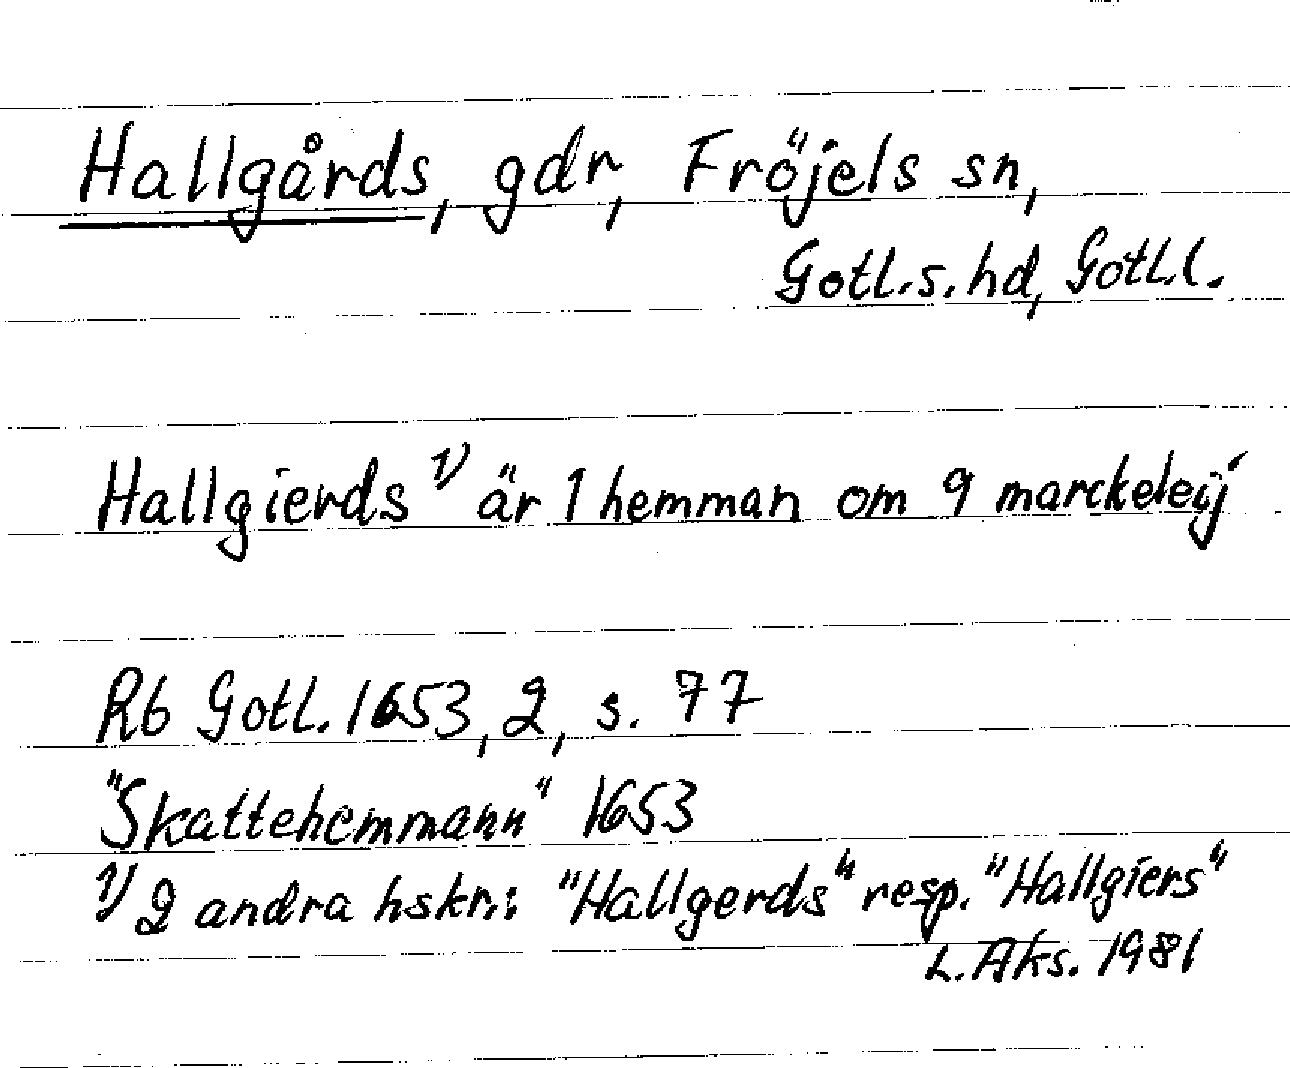 Hallgårds, gdr, Fröjels sn,
Gotl.s.hd, Gotl.l.
Hallgierds 1) är 1 hemman om 9 marckeleij
Rb Gotl. 1653, 2, s. 77
"Skattehemmann" 1653
1) 2 andra hskr.: "Hallgerds" resp. "Hallgiers"
L. Aks. 1981